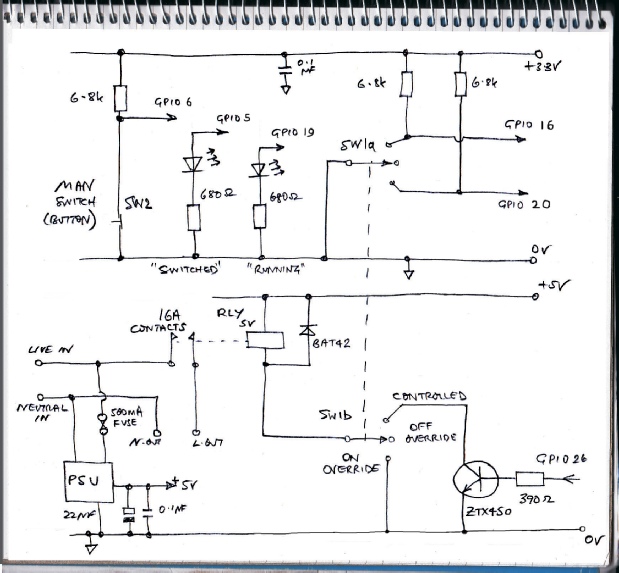 0.1
µF
+3.3V
6.8k
6.8k
6.8k
GPIO 6
GPIO 5
GPIO 19
GPIO 16
SW1a
MAN
SWITCH
(BUTTON)
SW2
680Ω
680Ω
GPIO 20
0V
"SWITCHED"
"RUNNING"
+5V
16A
CONTACTS
RLY
5V
BAT42
LIVE IN
NEUTRAL
IN
500MA
FUSE
N.OUT
L.OUT
SW1b
CONTROLLED
OFF
OVERRIDE
ON
OVERRIDE
GPIO 26
PSU
+5V
390Ω
ZTX450
22µF
0.1µF
0V